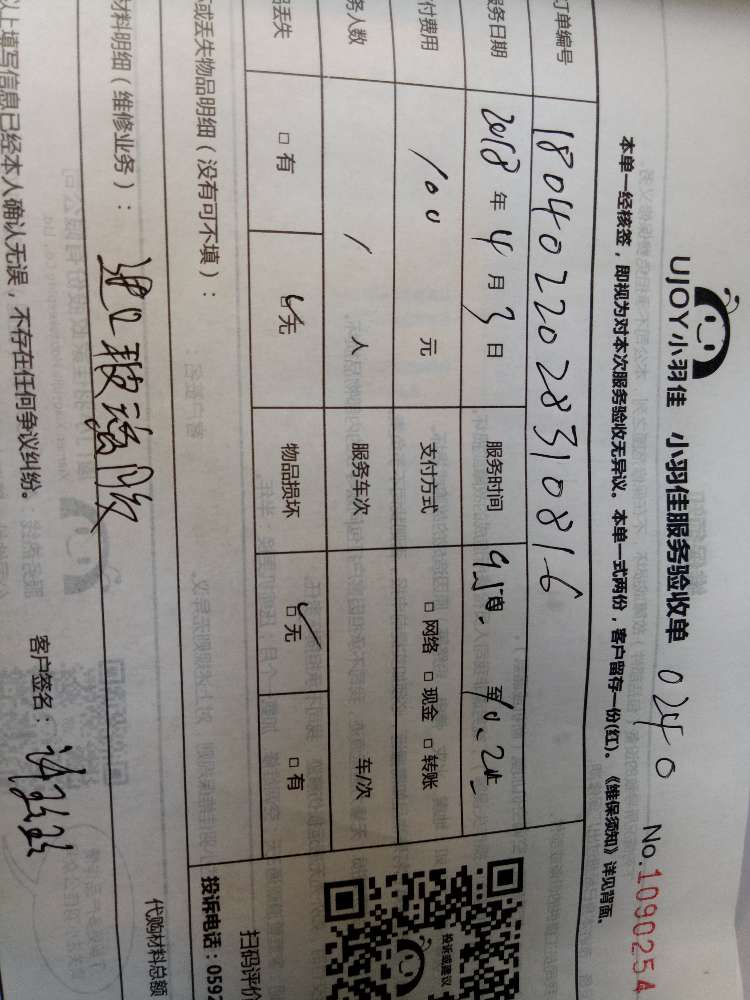 UJOY小羽佳 小羽佳服务验收单 0240 No.1090254
本单一经核签，即视为对本次服务验收无异议。本单一式两份，客户留存一份(红)。《维保须知》详见背面。
订单编号 1804022028310816
服务日期 2018年4月3日 服务时间 至
付费用 100元 支付方式 □网络 □现金 □转账
务人数 1人 服务车次 车/次
丢失 □有 ☑无 物品损坏 ☑无 □有
或丢失物品明细（没有可不填）：
扫码评价
投诉或建议
投诉电话：0592
材料明细（维修业务）：
代购材料总额
以上填写信息已经本人确认无误，不存在任何争议纠纷。 客户签名：